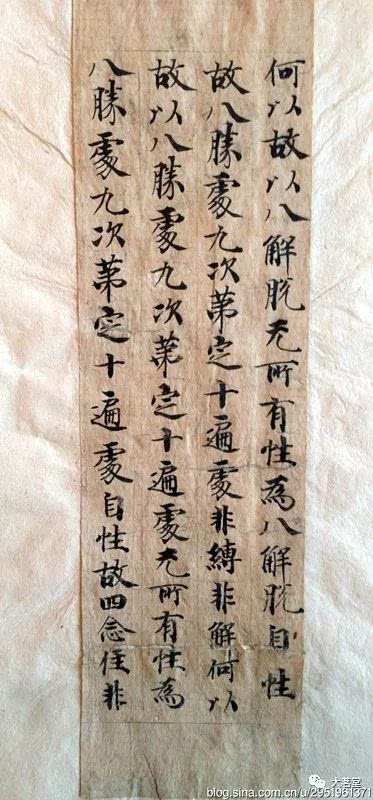 何以故以八解脱无所有性為八解脱自性
故八勝處九次第定十遍處非縛非解何以
故以八勝處九次第定十遍處无所有性為
八勝處九次第定十遍處自性故四念住非
大茗堂
blog.sina.com.cn/u/2951951371